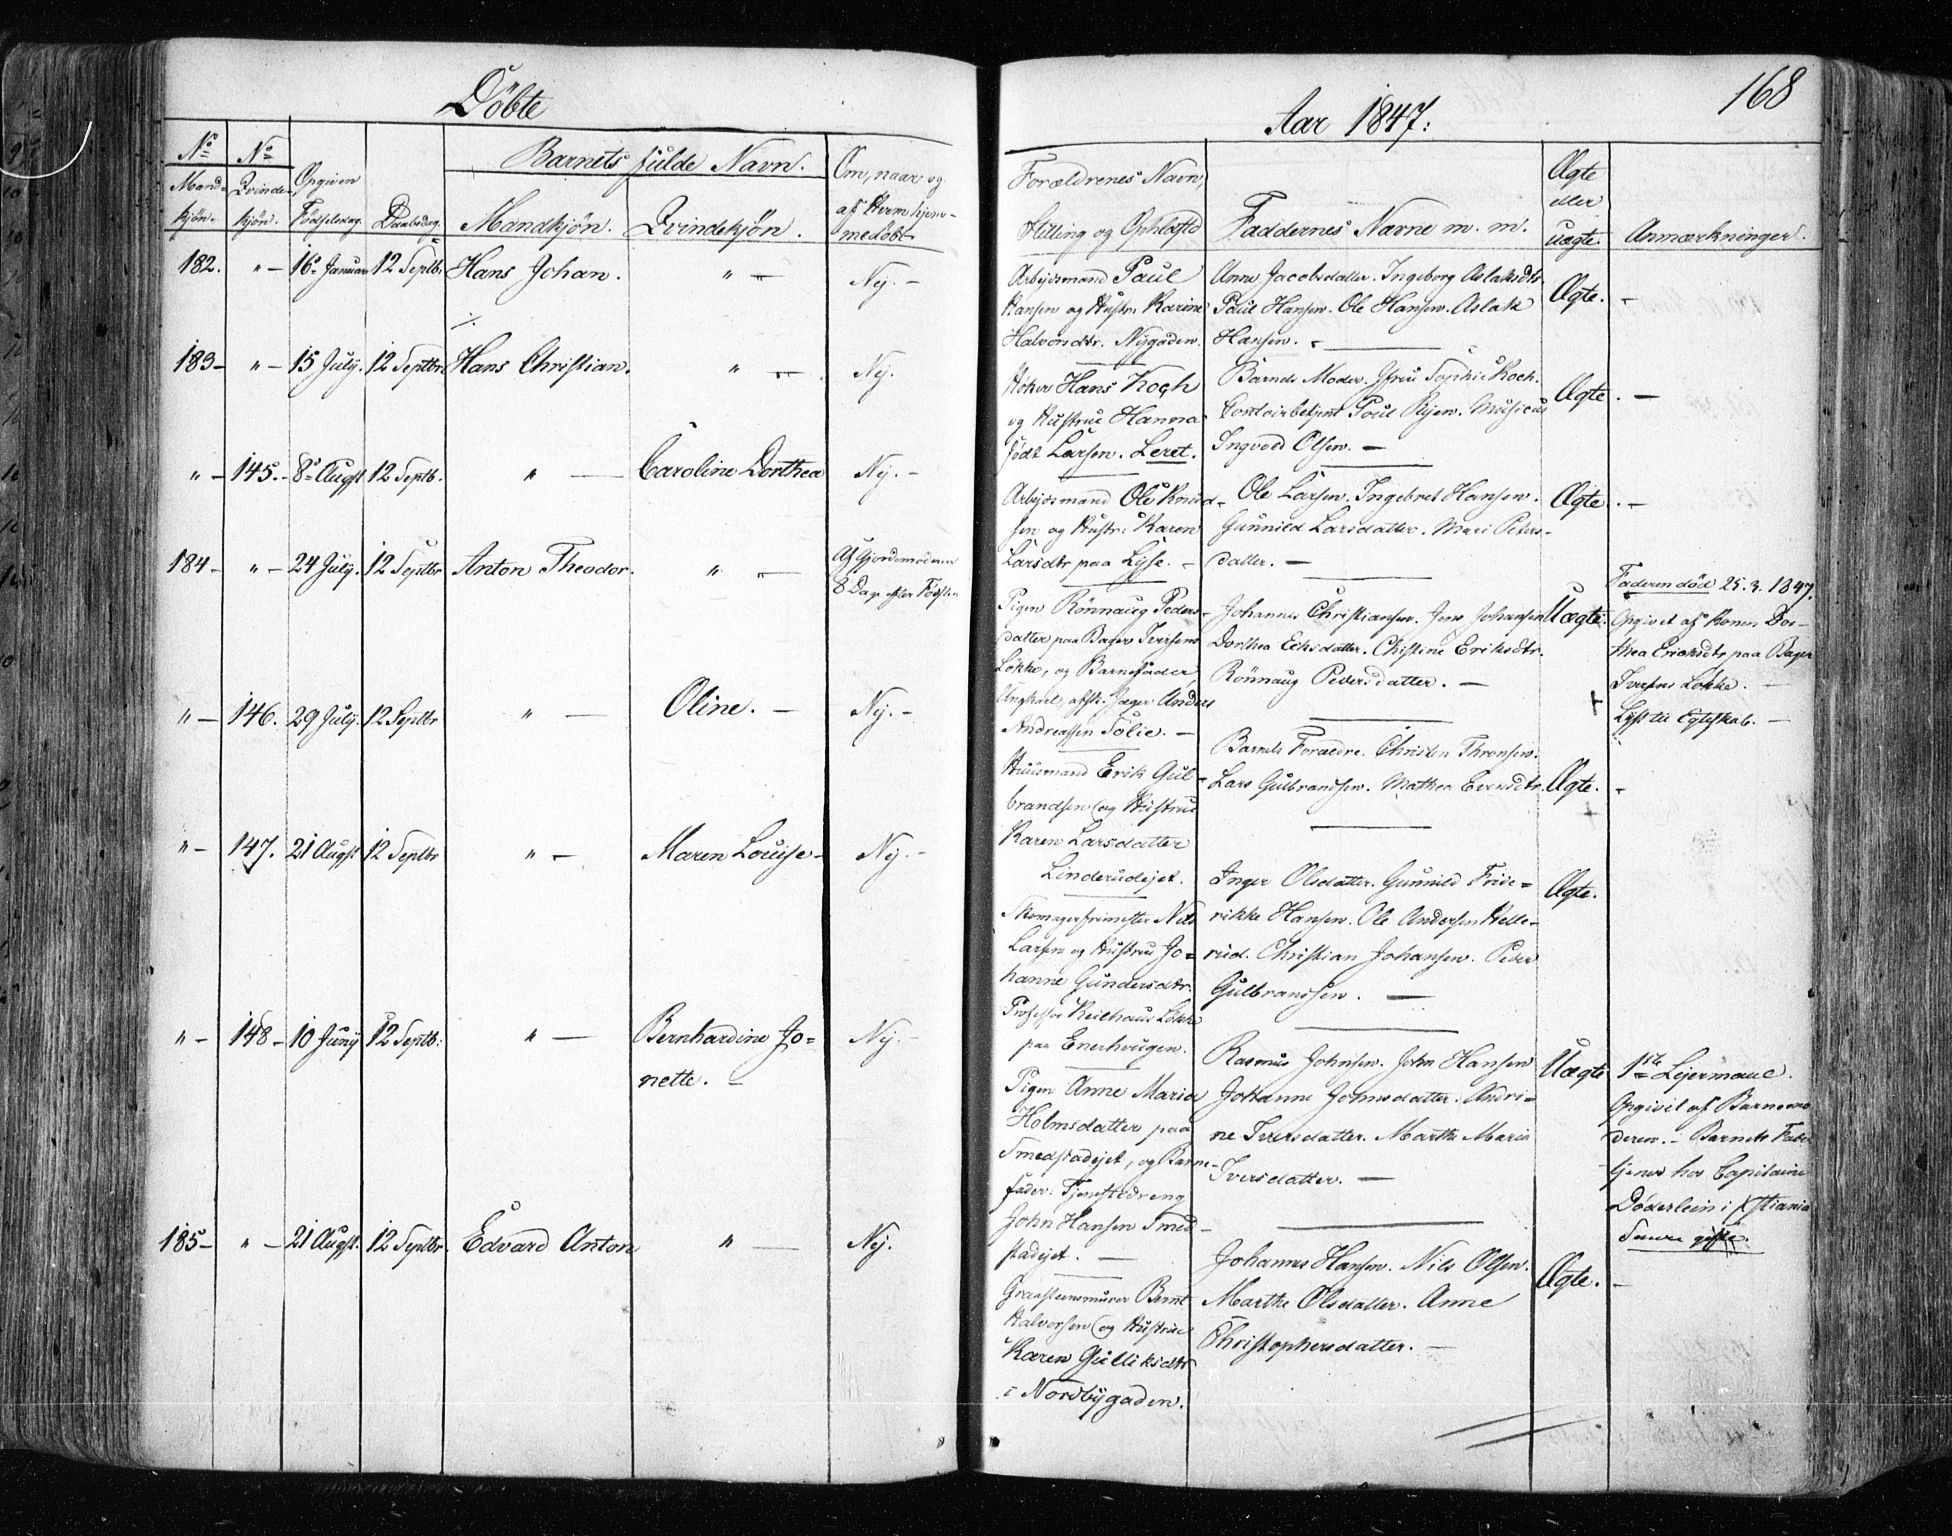 Döbte
168
Aar 1847:
No
No
Barnets fulde Navn.
Mand-
kjön.
Qvinde-
kjön.
Opgiven
Födselsdag.
Daabsdag.
Mandkjön.
Qvindekjön.
Om, naar og
af Hvem hjem-
medöbt
Forældrenes Navn,
Stilling og Opholdsted
Faddernes Navne m. m.
Ægte
eller
uægte
Anmærkninger.
182. " — 16 Januar 12 Septb. Hans Johan. " — Nej. —
Arbejdsmand Paul
Hansen og Hustr. Karine
Halvorsdtr. Nygaden.
Anne Jacobsdatter. Ingeborg Aslaksdtr.
Paul Hansen. Ole Hansen. Aslak
Hansen. —
Ægte. —
183 — " — 15 July. 12 Septbr. Hans Christian. " — Nej.
Höker Hans Koch
og Hustrue Hanna
født Larsen. Leret.
Barnets Moder. Jfru Sophie Koch.
Contoirbetjent Poul Ryen. Musicus
Ingvold Olsen. —
Ægte. —
" — 145. — 8 Augst 12 Septb. " — Caroline Dorthea Nej. —
Arbejdsmand Ole Knud-
sen og Hustr: Karen
Larsdtr paa Lyse. —
Ole Larsen. Ingebret Hansen.
Gunnild Larsdatter. Mari Peters-
datter. —
Ægte. —
184 — " — 24 July. 12 Septbr Anton Theodor. " — Af Gjordemoderen
8 Dage efter Födslen
Pigen Rönnaug Peders-
datter paa Bager Iversens
Løkke, og Barnefader,
Ungkarl, afsk. Jæger Anders
Andreassen Tolie. —
Johannes Christiansen. Jens Johansen
Dorthea Eriksdatter. Christine Eriksdtr.
Rönnaug Pedersdatter. —
Uægte.
Faderen död 25.3.1847.
Opgivet af Konen Dor-
thea Eriksdtr paa Bager
Iversens Løkke. —
Lyst til Egteskab. —
" — 146. 29 July. 12 Septbr " — Oline. — Nej. —
Huusmand Erik Gul-
brandsen og Hustrue
Karen Larsdatter
Linderudejet.
Barnets Forældre. Christen Thronsen.
Lars Gulbrandsen. Mathea Eversdtr.
Ægte. —
" — 147. 21 Augst 12 Septbr " — Maren Louise — Nej. —
Skomagersvend Nils
Larsen og Hustrue Jo-
hanne Gundersdtr.
Professor Keilhaus Løkke
paa Enerhougen.
Inger Olsdatter. Gunnild Fride-
rikke Hansen. Ole Andersen Helle-
rud. Christian Johansen. Peder
Gulbransen. —
Ægte.
" — 148 — 10 Juny 12 Septb: " — Bernhardine Jo-
nette. — Nej. —
Pigen Anne Maria
Holmsdatter paa
Smedstadejet, og Barne-
fader: Tjenestedreng
John Hansen Smed-
stadejet. —
Rasmus Johnsen. John Hansen
Johanne Johnsdatter. Andri-
ne Iversdatter. Marthe Maria
Iversdatter. —
Uægte
1ste Lejermaal.
Opgivet af Barnemo
deren. — Barnets Fader
tjener hos Capitaine
Döderlein i Xstiania
Senere gifte.
185 — " — 21 Augst. 12 Septbr. Edvard Anton " — Nej.
Graasteensmurer Bernt
Halvorsen og Hustrue
Karen Gulliksdtr
i Nordbygaden.
Johannes Hansen. Nils Olsen.
Marthe Olsdatter. Anne
Christophersdatter. —
Ægte. —